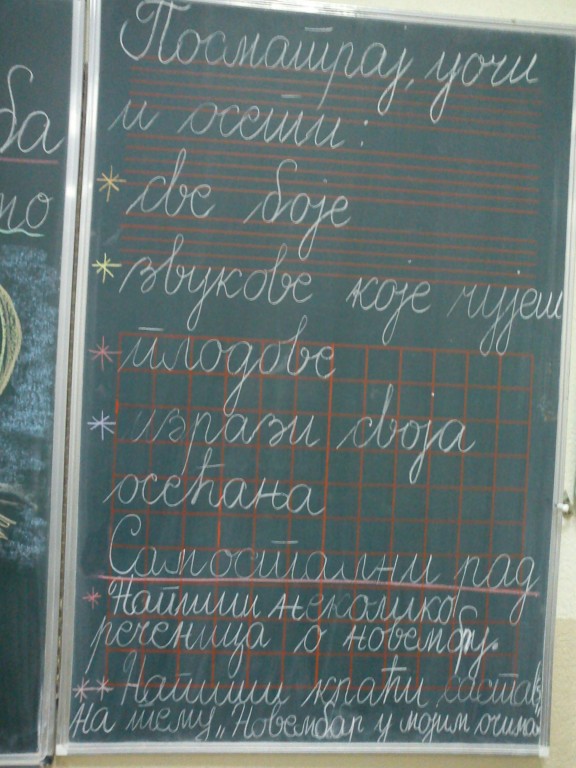 ба
то
Посматрај, уочи
и осети:
* све боје
* звукове које чујеш
* плодове
* изрази своја
осећања
Самостални рад
* Напиши неколико
реченица о новембру.
** Напиши краћи састав
на тему „Новембар у мојим очима"